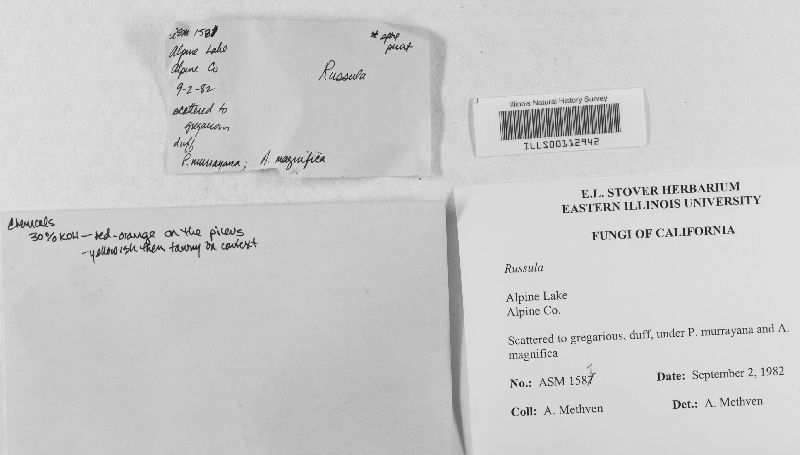 ASM 1587
Alpine Lake
Alpine Co
9-2-82
scattered to
gregarious
duff
P. murrayana; A. magnifica
* spre
print
Russula
Illinois Natural History Survey
ILLS00112942
Chemicals
30% KOH — red-orange on the pileus
- yellowish then tawny on context
E.L. STOVER HERBARIUM
EASTERN ILLINOIS UNIVERSITY
FUNGI OF CALIFORNIA
Russula
Alpine Lake
Alpine Co.
Scattered to gregarious, duff, under P. murrayana and A.
magnifica
No.: ASM 1587
Date: September 2, 1982
Coll: A. Methven
Det.: A. Methven